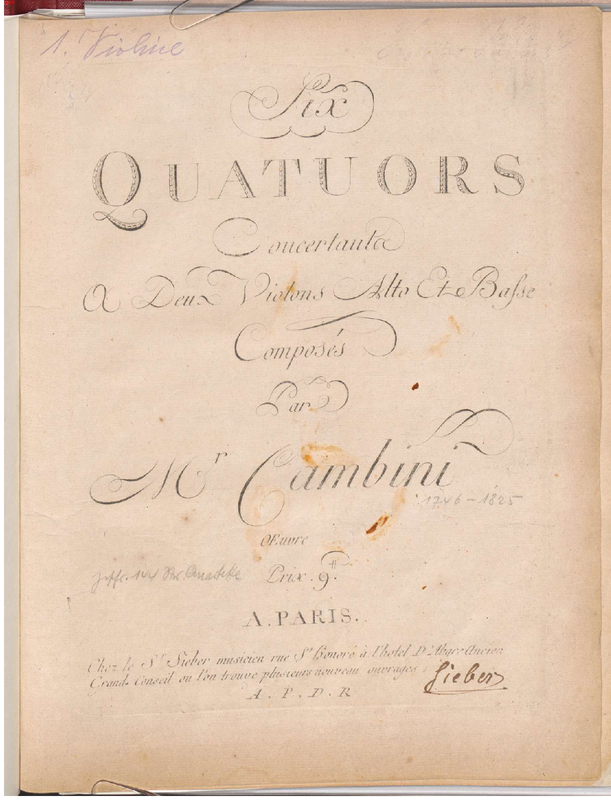 1. Violine
Six
QUATUORS
Concertants
A Deux Violons Alto Et Basse
Composés
Par
Mr Cambini
1746-1825
Œuvre
Prix 9.#
A. PARIS.
Chez le Sr Sieber musicien rue St honoré à l'hotel D'Aligre Ancien
Grand Conseil ou l'on trouve plusieurs nouveau ouvrages.
Sieber
A. P. D. R